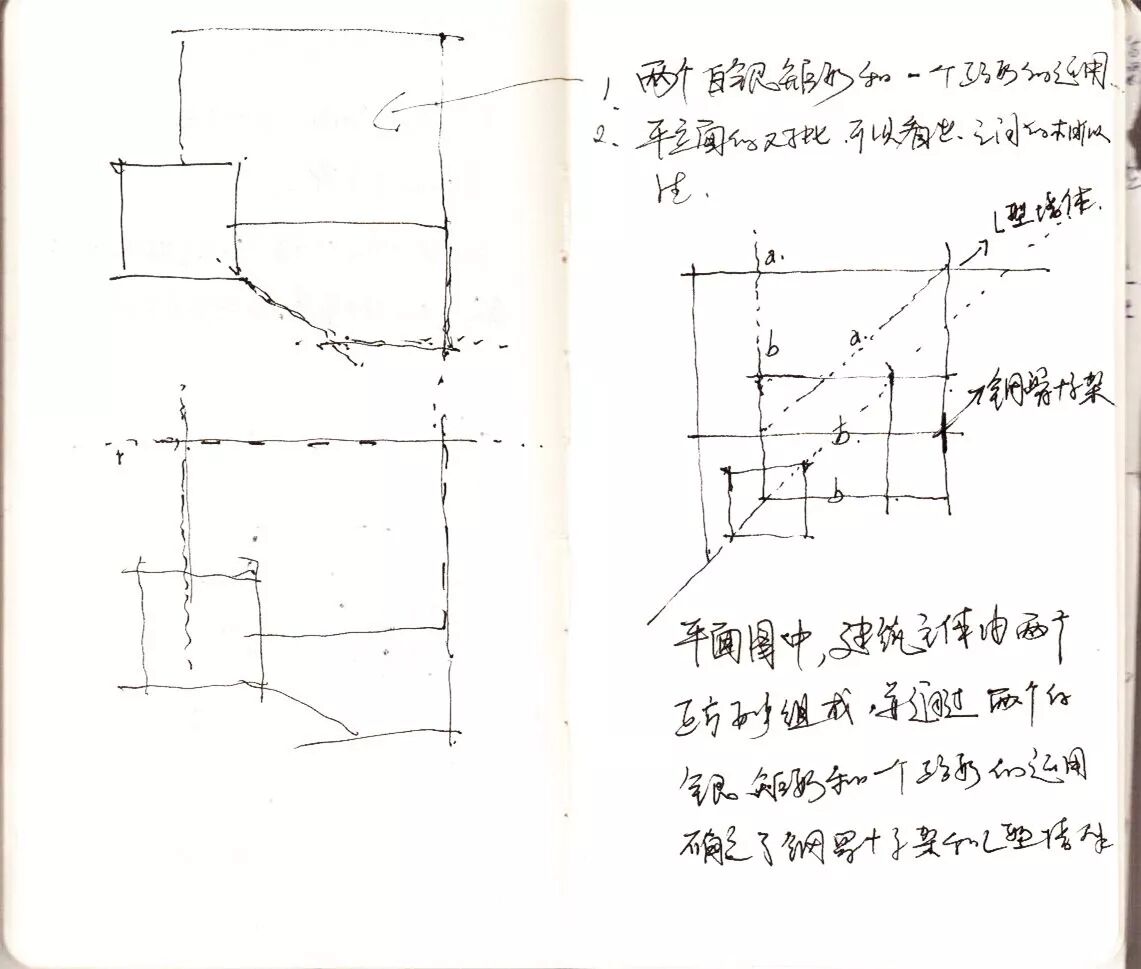 1. 两个白银矩形和一个正方形的运用.
2. 平立面的对比,可以看出,之间的相似
性.
L型墙体.
a.
a.
b
b.
b
钢骨十字架
平面图中,建筑主体由两个
正方形组成,并通过两个白
银矩形和一个正方形的运用
确定了钢骨十字架和L型墙体